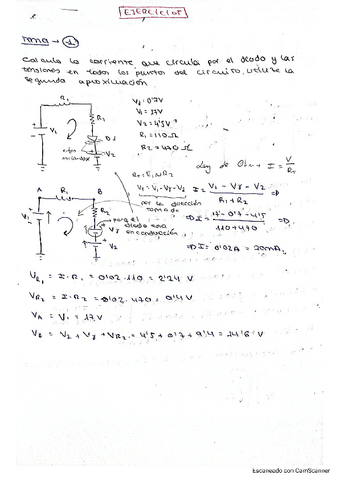 EJERCICIOS
TEMA → 1.
Calcula la corriente que circula por el diodo y las
tensiones en todos los puntos del circuito, utilice la
segunda aproximación.
R1
V1
R2
D1
V2
Vγ = 0'7V
V1 = 17V
V2 = 4'5V
R1 = 110 Ω
R2 = 470 Ω
Ley de Ohm → I = V / RT
A R1 B
V1
R2
Vγ
V2
V1 - Vγ - V2
I = V1 - Vγ - V2 / R1 + R2 ⇒
por la dirección
⇒ I = 17 - 0'7 - 4'5 / 110 + 470 ⇒
⇒ I = 0'02A = 20mA.
VR1 = I · R1 = 0'02 · 110 = 2'24 V
VR2 = I · R2 = 0'02 · 470 = 9'4 V
VA = V1 = 17V
VB = V2 + Vγ + VR2 = 4'5 + 0'7 + 9'4 = 14'6 V
Escaneado con CamScanner